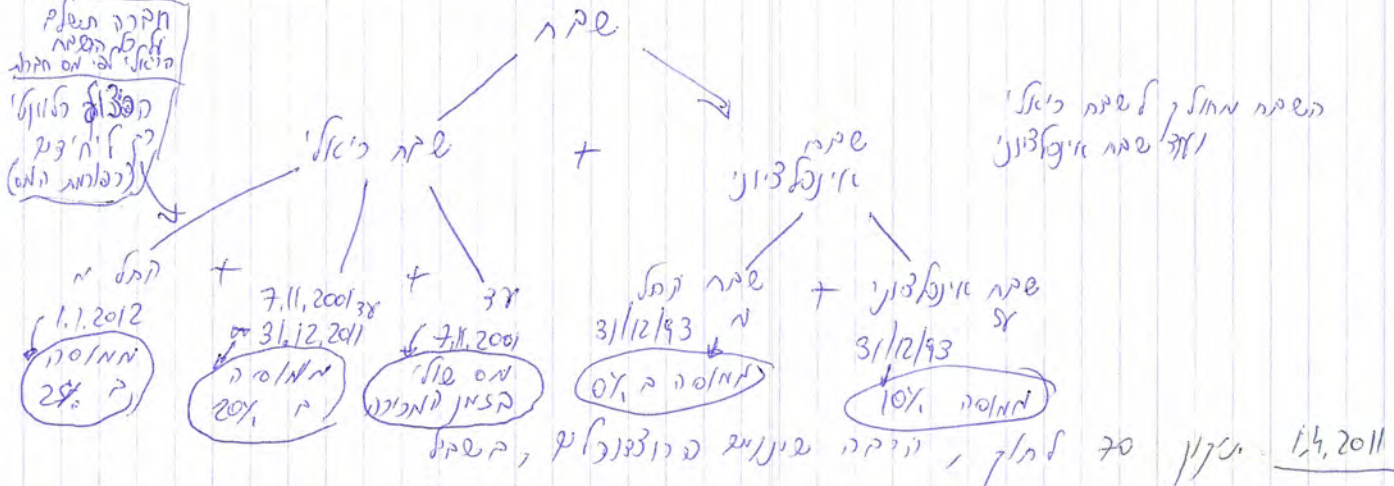 שבח
חברה תשלם
על כל השבח
הריאלי לפי מס חברות
הפיצול רלוונטי
רק ליחידים
(רפורמת המס)
השבח מחולק לשבח ריאלי
ועוד שבח אינפלציוני
שבח ריאלי + שבח
אינפלציוני
החל מ + 7.11.2001 עד + עד שבח החל + שבח אינפלציוני
1.1.2012 31.12.2011 7.11.2001 מ 31/12/93 עד 31/12/93
ממוסה
ב 25%
ממוסה
ב 20%
מס שולי
בזמן המכירה
ממוסה ב 0%
ממוסה 10%
1.4.2011 תיקון 70 לחוק, הרבה שינויים פרוצדורלים, בשביל